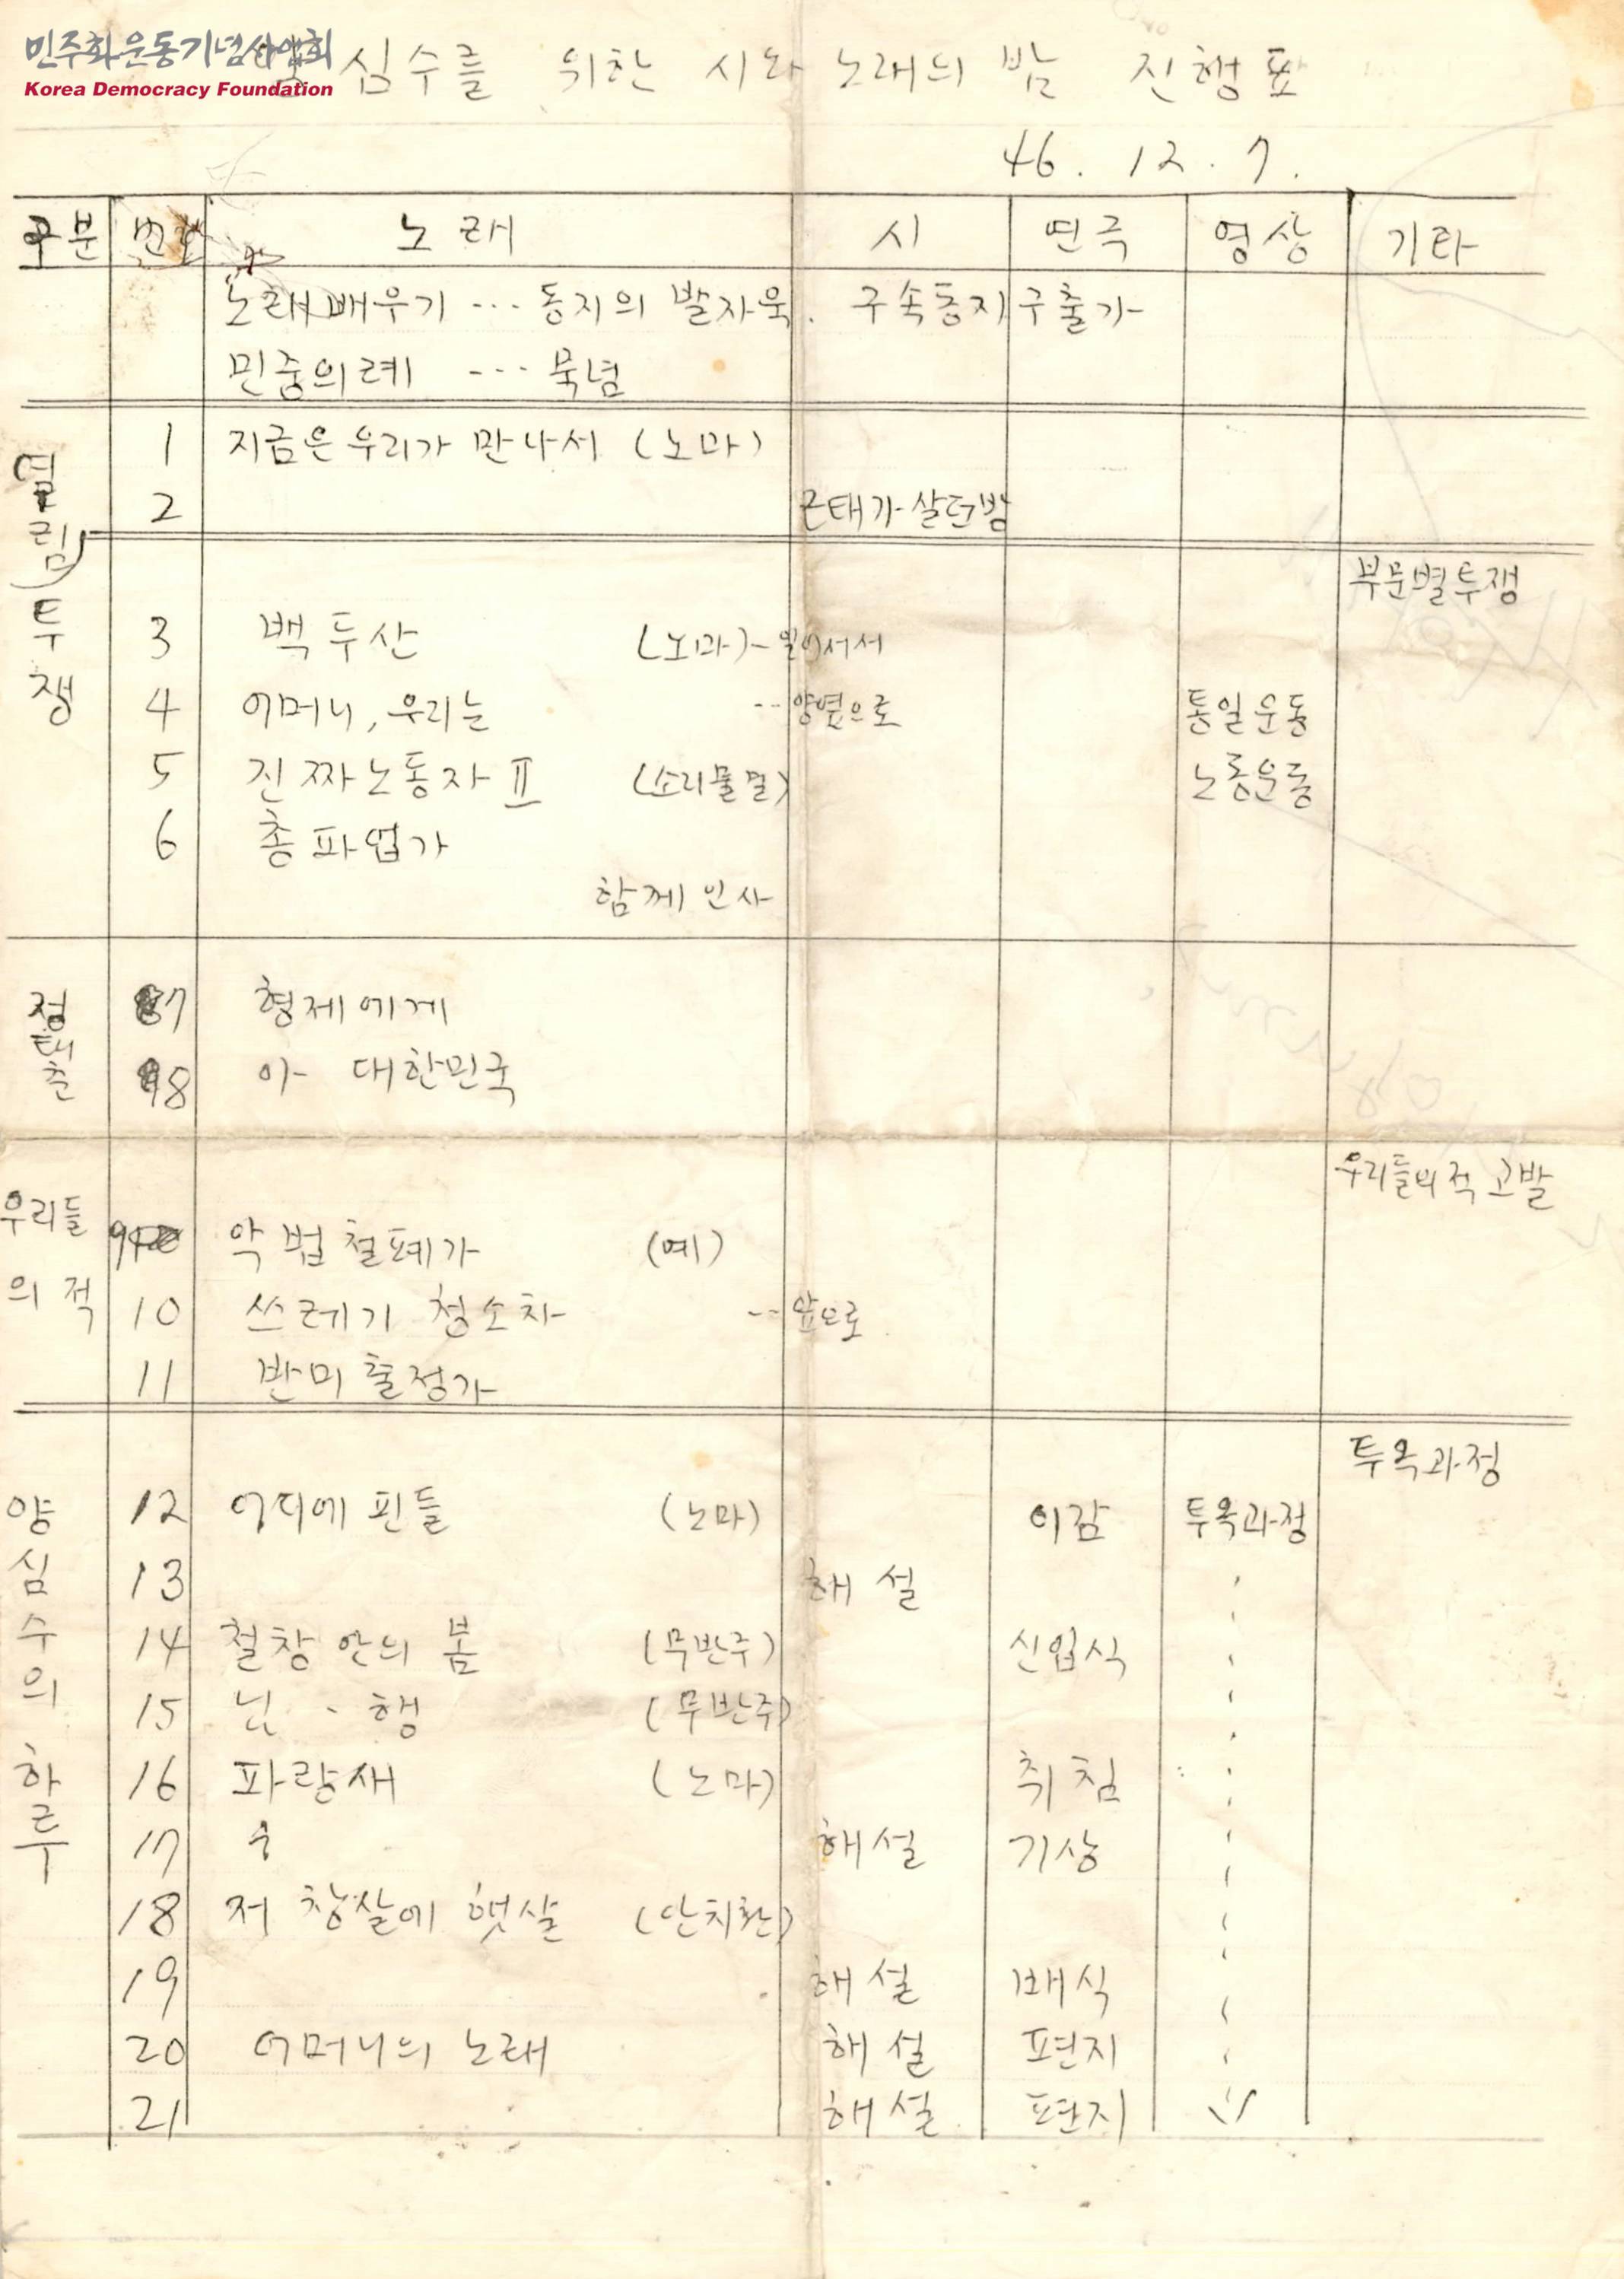 민주화운동기념사업회
Korea Democracy Foundation
심수를 위한 시와 노래의 밤 진행표
46. 12. 7.
구분 번호 노래 시 연극 영상 기타
노래배우기 … 동지의 발자욱. 구속동지구출가
민중의례 … 묵념
열림
1 지금은 우리가 만나서 (노마)
2 근태가 살던방
투쟁
부문별투쟁
3 백두산 (노마) - 일어서서
4 어머니, 우리는 -- 양옆으로 통일운동
5 진짜노동자 Ⅱ (소리물결) 노동운동
6 총파업가
함께 인사
정태춘
7 형제에게
8 아 대한민국
우리들의 적
우리들의 적 고발
9 악법철폐가 (예)
10 쓰레기 청소차 -- 앞으로
11 반미출정가
양심수의 하루
투옥과정
12 어디에 핀들 (노마) 이감 투옥과정
13 해설
14 철창 안의 봄 (무반주) 신입식
15 (무반주)
16 파랑새 (노마) 취침
17 해설 기상
18 저 창살에 햇살 (안치환)
19 해설 배식
20 어머니의 노래 해설 편지
21 해설 편지